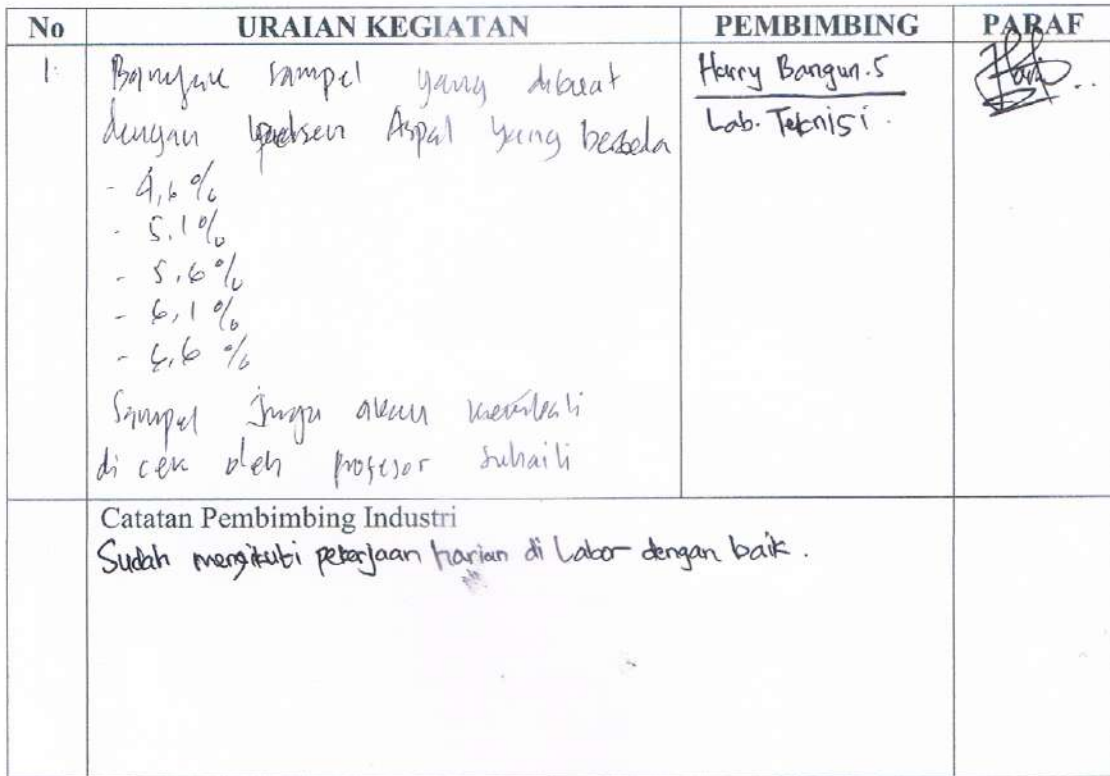 No URAIAN KEGIATAN PEMBIMBING PARAF
1. Banyak sampel yang dibuat Harry Bangun.S
dengan Aspal yang berbeda Lab. Teknisi.
- 4,6 %
- 5.1 %
- 5,6 %
- 6,1 %
- 6,6 %
Sampel Juga akan kembali
di cek oleh profesor suhaili
Catatan Pembimbing Industri
Sudah mengikuti pekerjaan harian di Labor dengan baik.